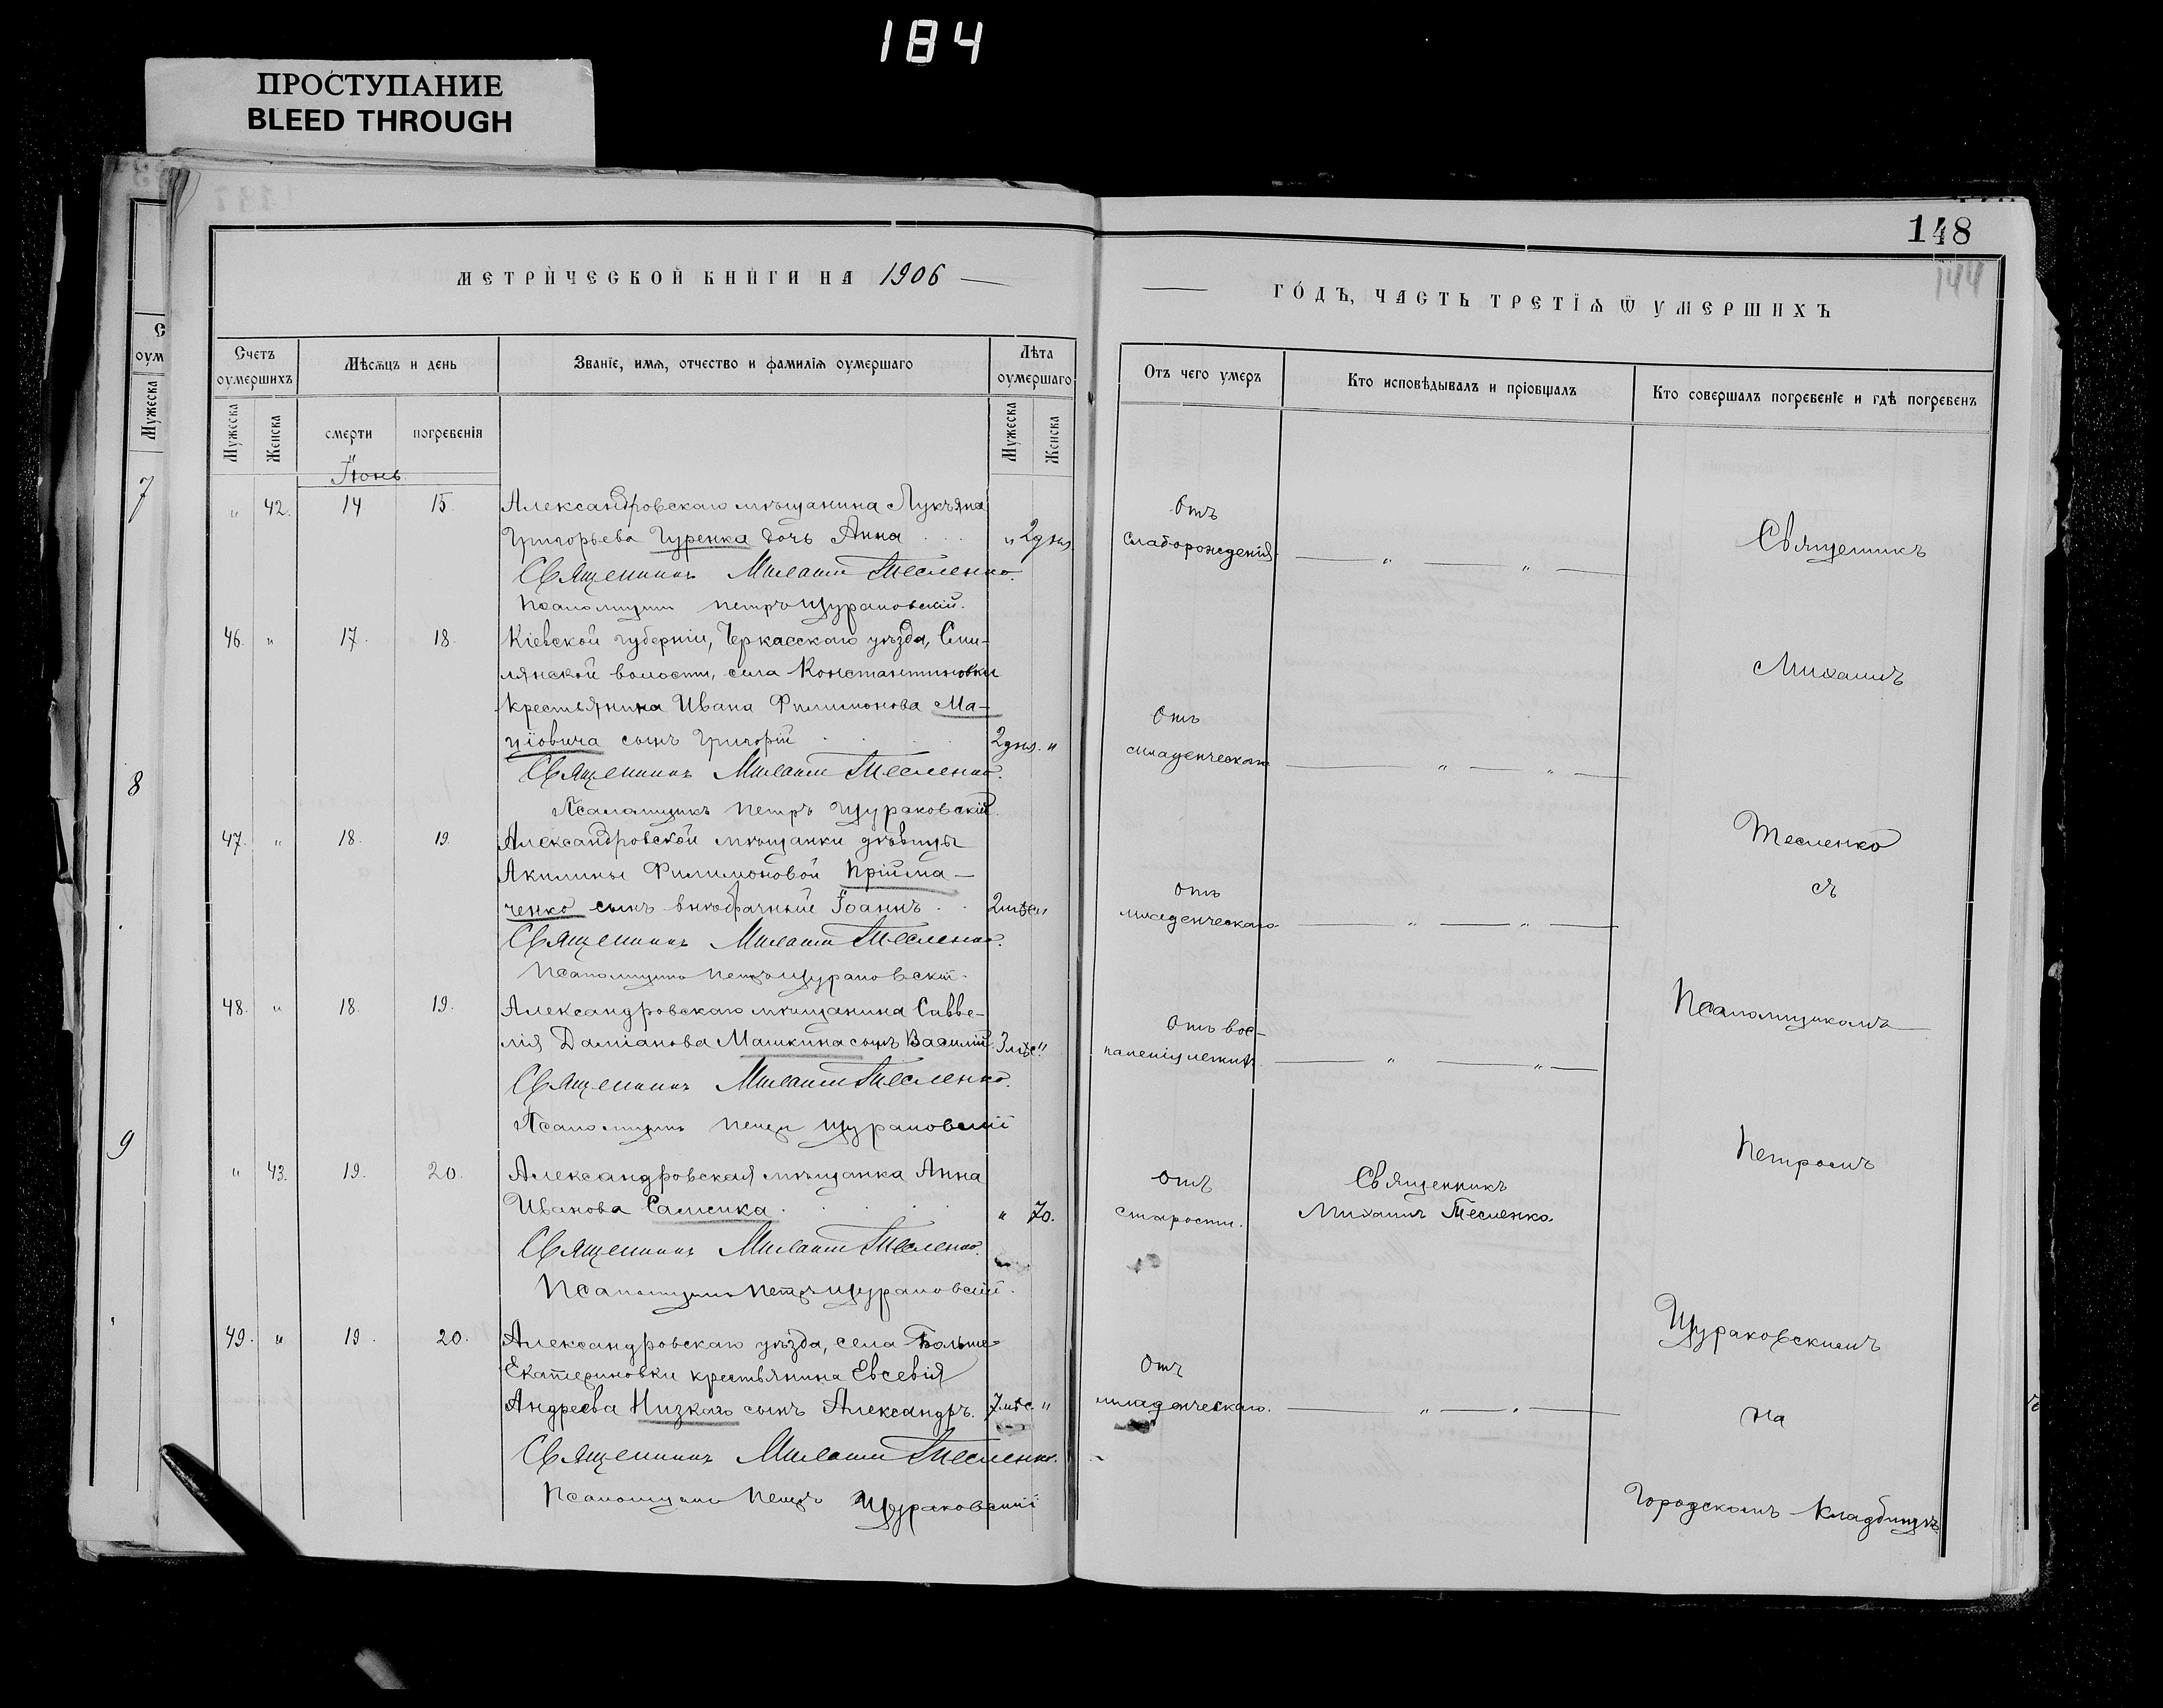 184
ПРОСТУПАНИЕ
BLEED THROUGH
148
144
МЕТРИЧЕСКОЙ КНИГИ НА 1906
ГОДЪ, ЧАСТЬ ТРЕТІЯ Ѿ УМЕРШИХЪ
Счетъ оумершихъ
Мѣсяцъ и день
Званіе, имя, отчество и фамилія оумершаго
Лѣта оумершаго
Отъ чего умеръ
Кто исповѣдывалъ и пріобщалъ
Кто совершалъ погребеніе и гдѣ погребенъ
Мужеска
Женска
смерти
погребенія
Мужеска
Женска
Мужеска
7
8
9
Іюнь
" 42. 14 15. Александровскаго мѣщанина Лукъяна
Григорьева Гуренка дочь Анна " 2 дня
Отъ
слаборожденія
Священникъ Михаилъ Тесленко.
Псаломщикъ Петръ Щураковскій.
46. " 17. 18. Кіевской губерніи, Черкасскаго уѣзда, Сми-
лянской волости, села Константиновки
крестьянина Ивана Филимонова Ма-
ціовича сынъ Григорій 2 дня. "
Отъ
младенческаго
Священникъ Михаилъ Тесленко.
Псаломщикъ Петръ Щураковскій.
47. " 18. 19. Александровской мѣщанки дѣвицы
Акилины Филимоновой Прійма-
ченко сынъ внѣбрачный Іоаннъ 2 мѣс "
отъ
младенческаго
Священникъ Михаилъ Тесленко.
Псаломщикъ Петръ Щураковскій.
48. " 18. 19. Александровскаго мѣщанина Савве-
лія Даміанова Машкина сынъ Василій 3 мѣс. "
Отъ вос-
паленія легкихъ
Священникъ Михаилъ Тесленко.
Псаломщикъ Петръ Щураковскій
" 43. 19. 20. Александровская мѣщанка Анна
Иванова " 70.
отъ
старости.
Священникъ
Михаилъ Тесленко.
Священникъ Михаилъ Тесленко.
Псаломщикъ Петръ Щураковскій.
49. " 19. 20. Александровскаго уѣзда, села Больше-
Екатериновки крестьянина Евсевія
Андреева Низкаго сынъ Александръ. 7 мѣс. "
Отъ
младенческаго.
Священникъ Михаилъ Тесленко.
Псаломщикъ Петръ Щураковскій
Священникъ
Михаилъ
Тесленко
съ
Псаломщикомъ
Петромъ
Щураковскимъ
на
Городскомъ кладбищѣ.